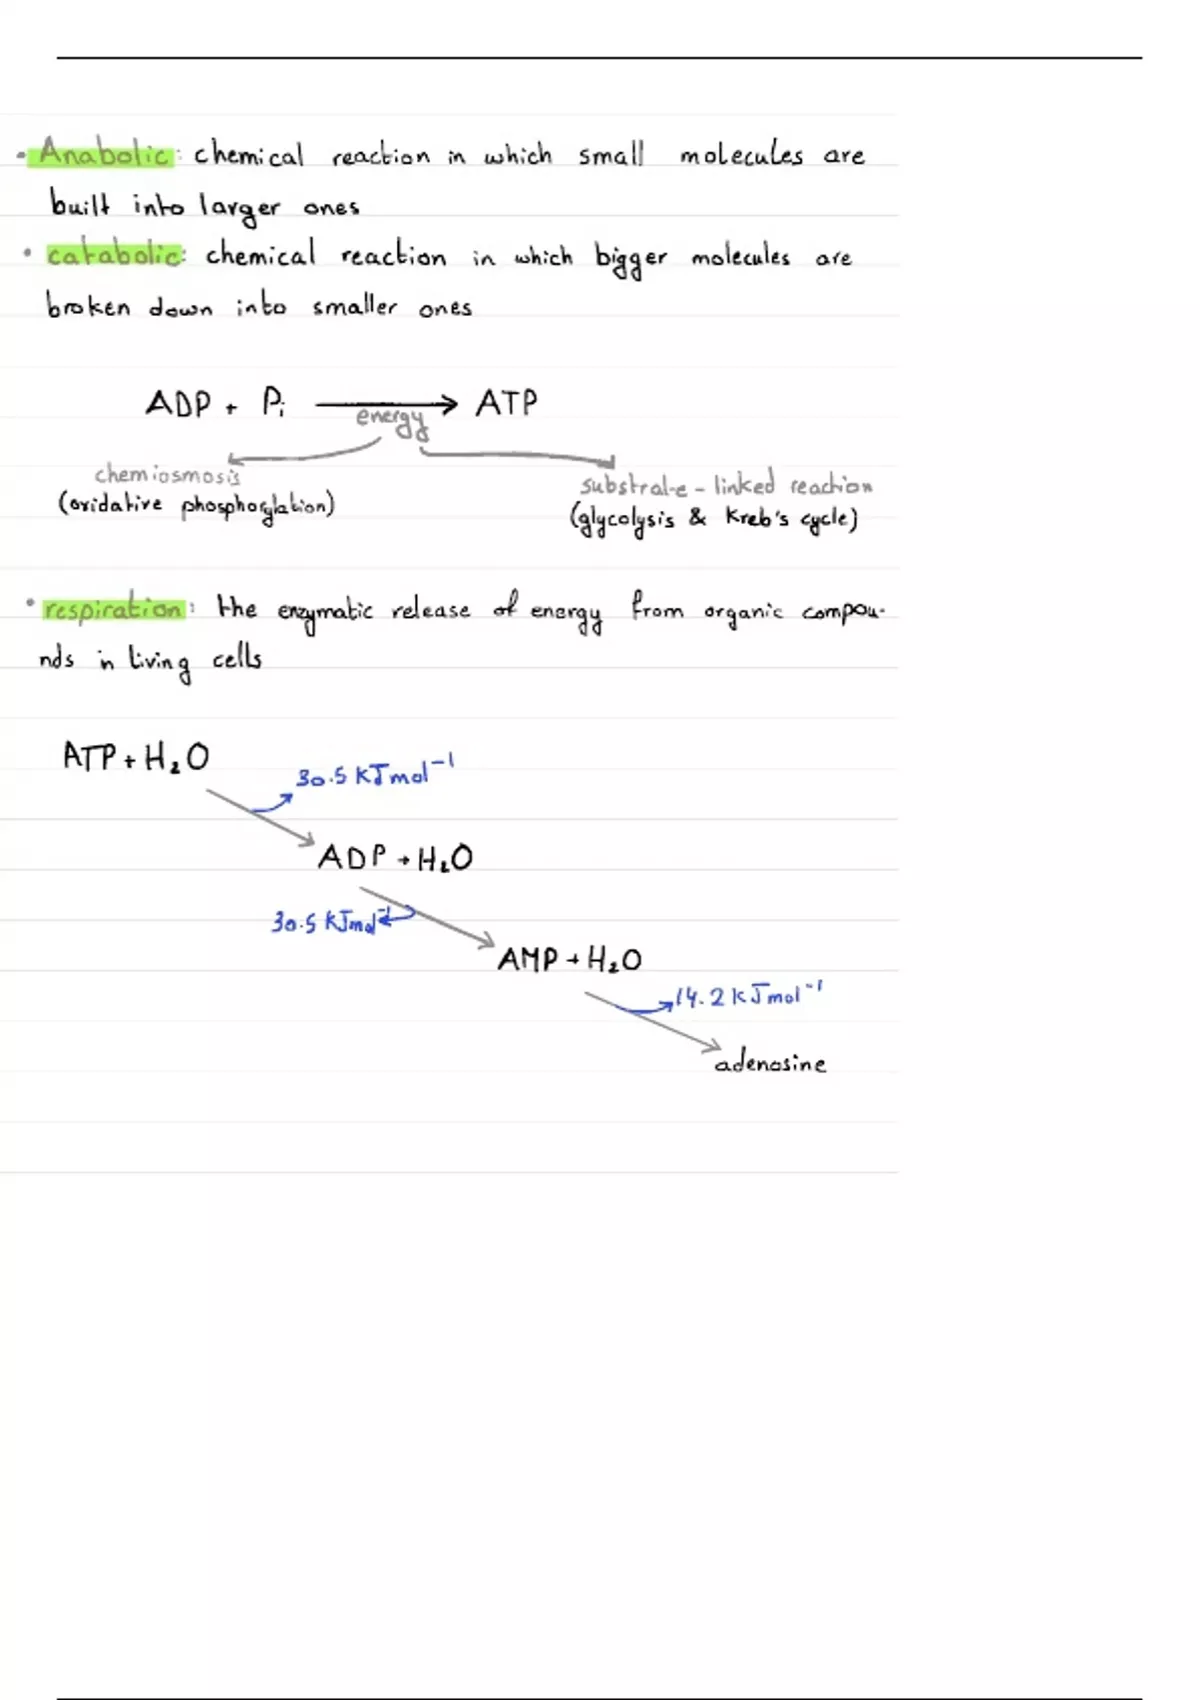 • Anabolic: chemical reaction in which small molecules are
built into larger ones
• catabolic: chemical reaction in which bigger molecules are
broken down into smaller ones
ADP + Pi ⟶ ATP
energy
chemiosmosis
(oxidative phosphorylation)
substrate-linked reaction
(glycolysis & Kreb's cycle)
• respiration: the enzymatic release of energy from organic compou-
nds in living cells
ATP + H₂O
30.5 KJmol⁻¹
ADP + H₂O
30.5 KJmol⁻¹
AMP + H₂O
14.2 KJmol⁻¹
adenosine